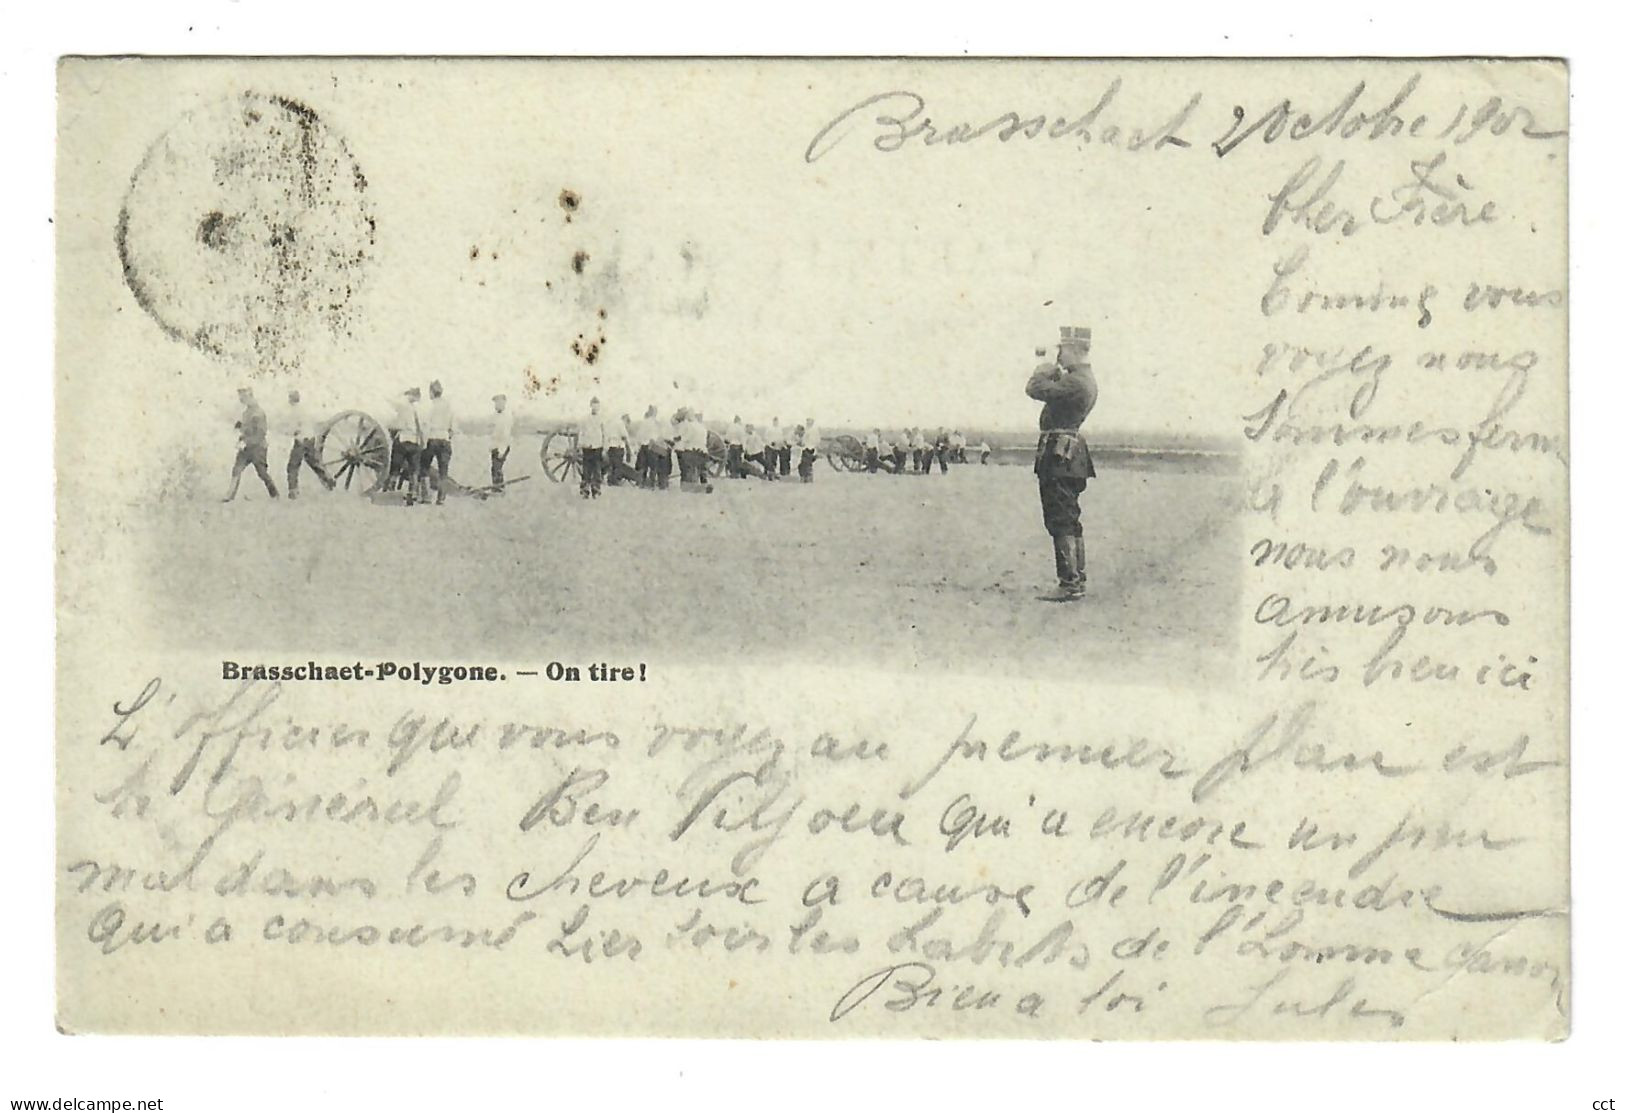 Brasschaet 2 Octobre 1902
Cher Frère.
Coming vous
voyez nous
sommes ferme
a l'ouvraige
nous nous
amusons
très bien ici
Brasschaet-Polygone. — On tire!
L'officier que vous voyez au premier plan est
le Général Ben Viljoen qui a encore un peu
mal dans les cheveux a cause de l'incendie
qui a consumé hier tous les habits de l'homme canon
Bien a toi Jules
delcampe.net
cct